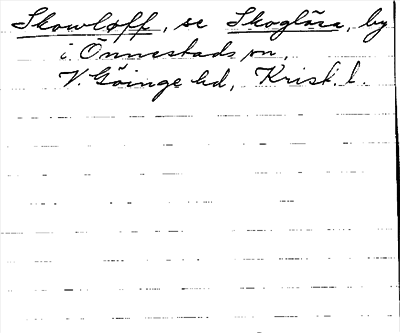 Skowloff, se Skoglösa, by
i Önnestads sn,
V. Göinge hd, Krist. l.